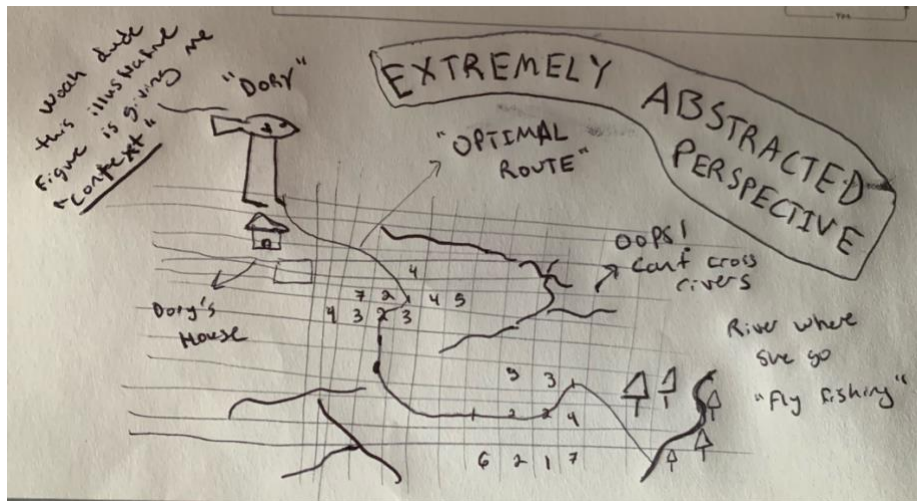 Woah dude
this illustrative
figure is giving me
"context"
"DORY"
EXTREMELY ABSTRACTED
PERSPECTIVE
"OPTIMAL
ROUTE"
OOPS!
Cant cross
rivers
4
7 2 1 4 5
4 3 2 3
Dory's
House
River where
she go
"Fly fishing"
9 3 1
1 2 3 4
6 2 1 7